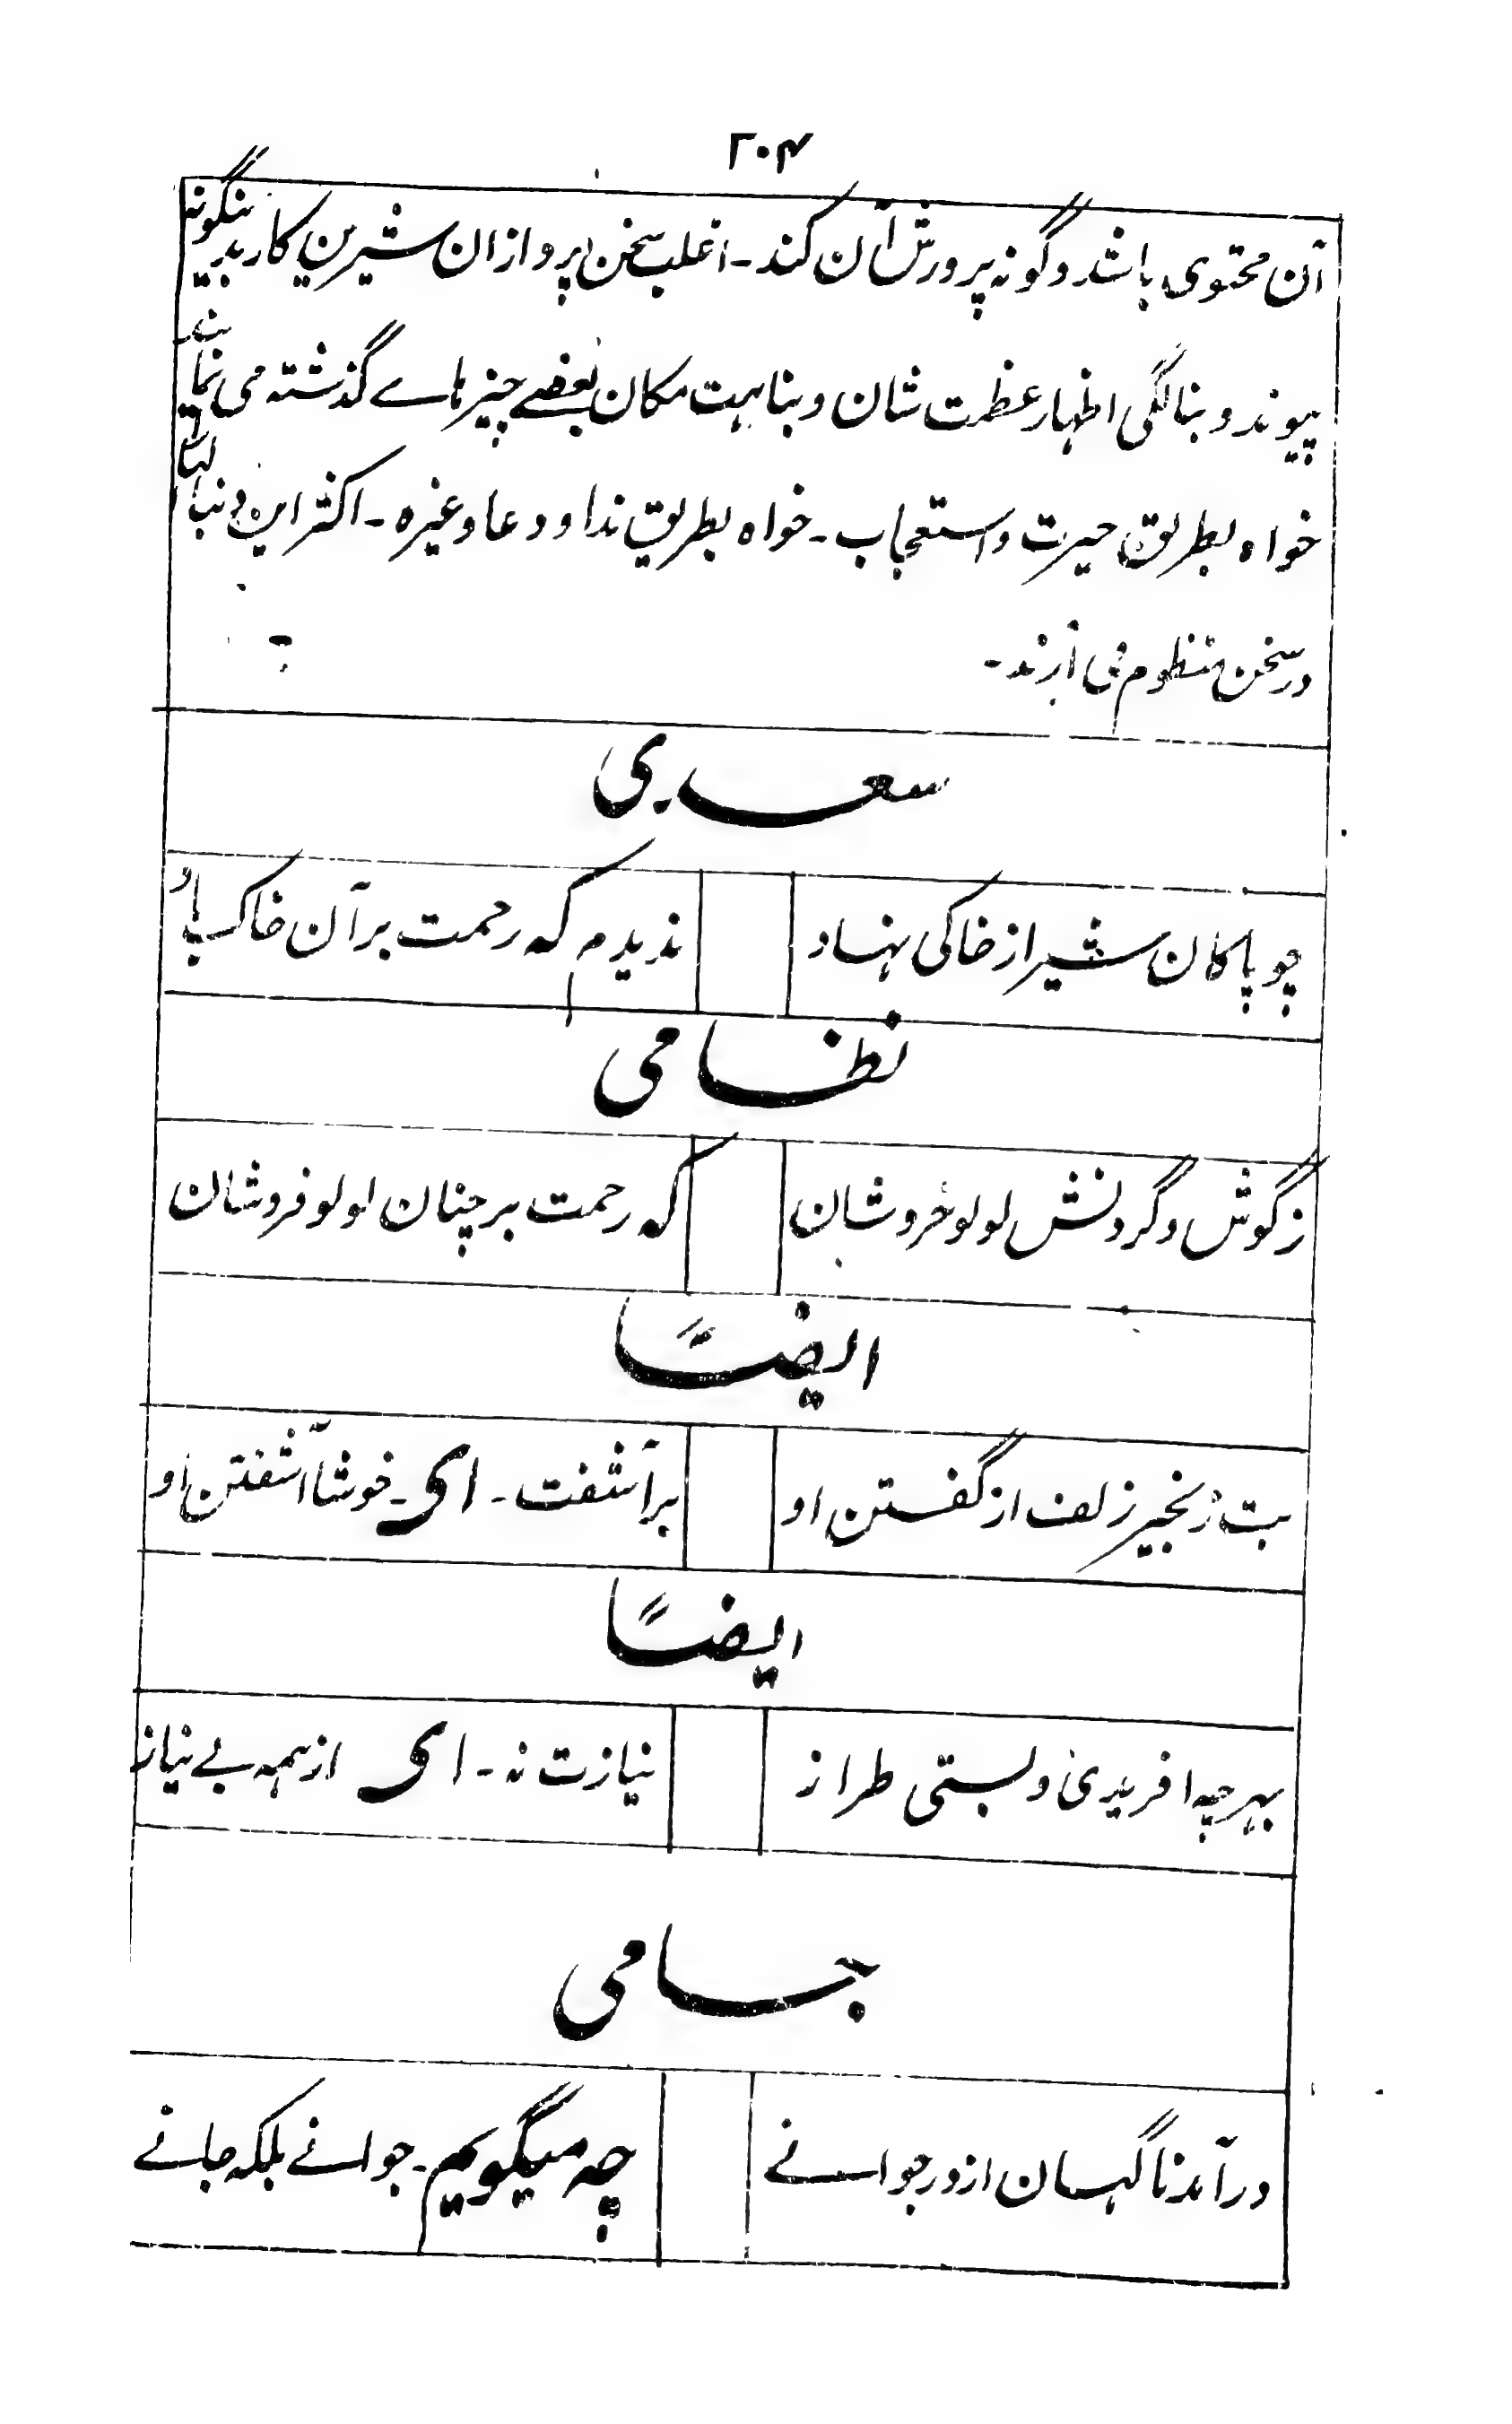 ۲۰۴
آن محتوی باشد و گونه پرورش آن کند - اغلب سخن پردازان شیرین کار بدینگونه
پیوند و بنالگی اظہار عظمت شان و نباہت مکان بعضے چیزہاے گذشتہ می نمایند
خواہ بطریق حیرت و استعجاب - خواہ بطریق ندا و دعا و غیرہ - اکثر این دنبالہا
در سخن منظوم می آرند -
سعدی
چو پاکان شیراز خاکی نہاد ندیدم کہ رحمت بر آن خاک باد
نظامی
ز گوش و گردنش لولو خروشان کہ رحمت بر چنان لولو فروشان
ایضًا
بت زنجیر زلف از گفتن او بر آشفت - ای - خوشا آشفتن او
ایضًا
بہرچہ آفریدی و بستی طراز نیازت نہ - ای از ہمہ بے نیاز
جامی
در آمد ناگہان از در جوانے چہ میگویم - جوانے بلکہ جانے